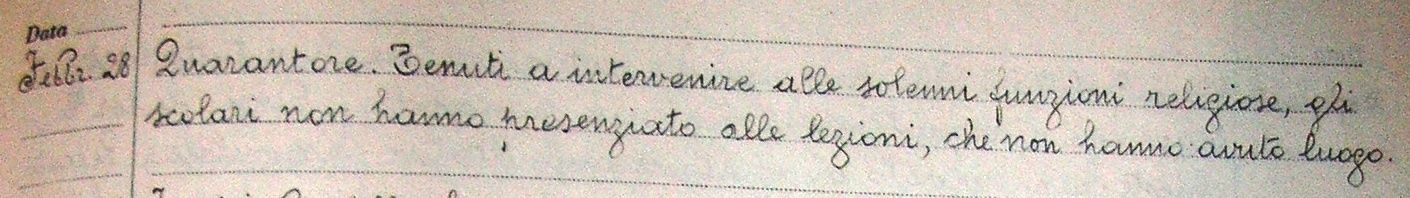 Data
Febbr. 28
Quarantore. Tenuti a intervenire alle solenni funzioni religiose, gli
scolari non hanno presenziato alle lezioni, che non hanno avuto luogo.